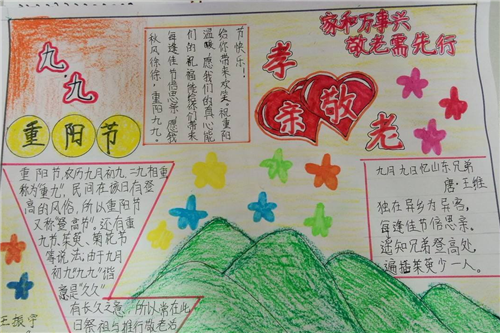 九.九
重阳节
秋风徐徐,重阳九九,
每逢佳节倍思亲,愿我
们的祝福能给你们带来
温暖,愿我们的真心能
给你带来欢笑,祝重阳
节快乐!
家和万事兴
敬老需先行
孝亲敬老
重阳节,农历九月初九,二九相重
称为"重九",民间在该日有登
高的风俗,所以重阳节
又称"登高节"。还有重
九节、茱萸、菊花节
等说法。由于九月
初九"九九"谐
音是"久久"
有长久之意,所以常在此
日祭祖与推行敬老活
九月九日忆山东兄弟
唐·王维
独在异乡为异客,
每逢佳节倍思亲。
遥知兄弟登高处,
遍插茱萸少一人。